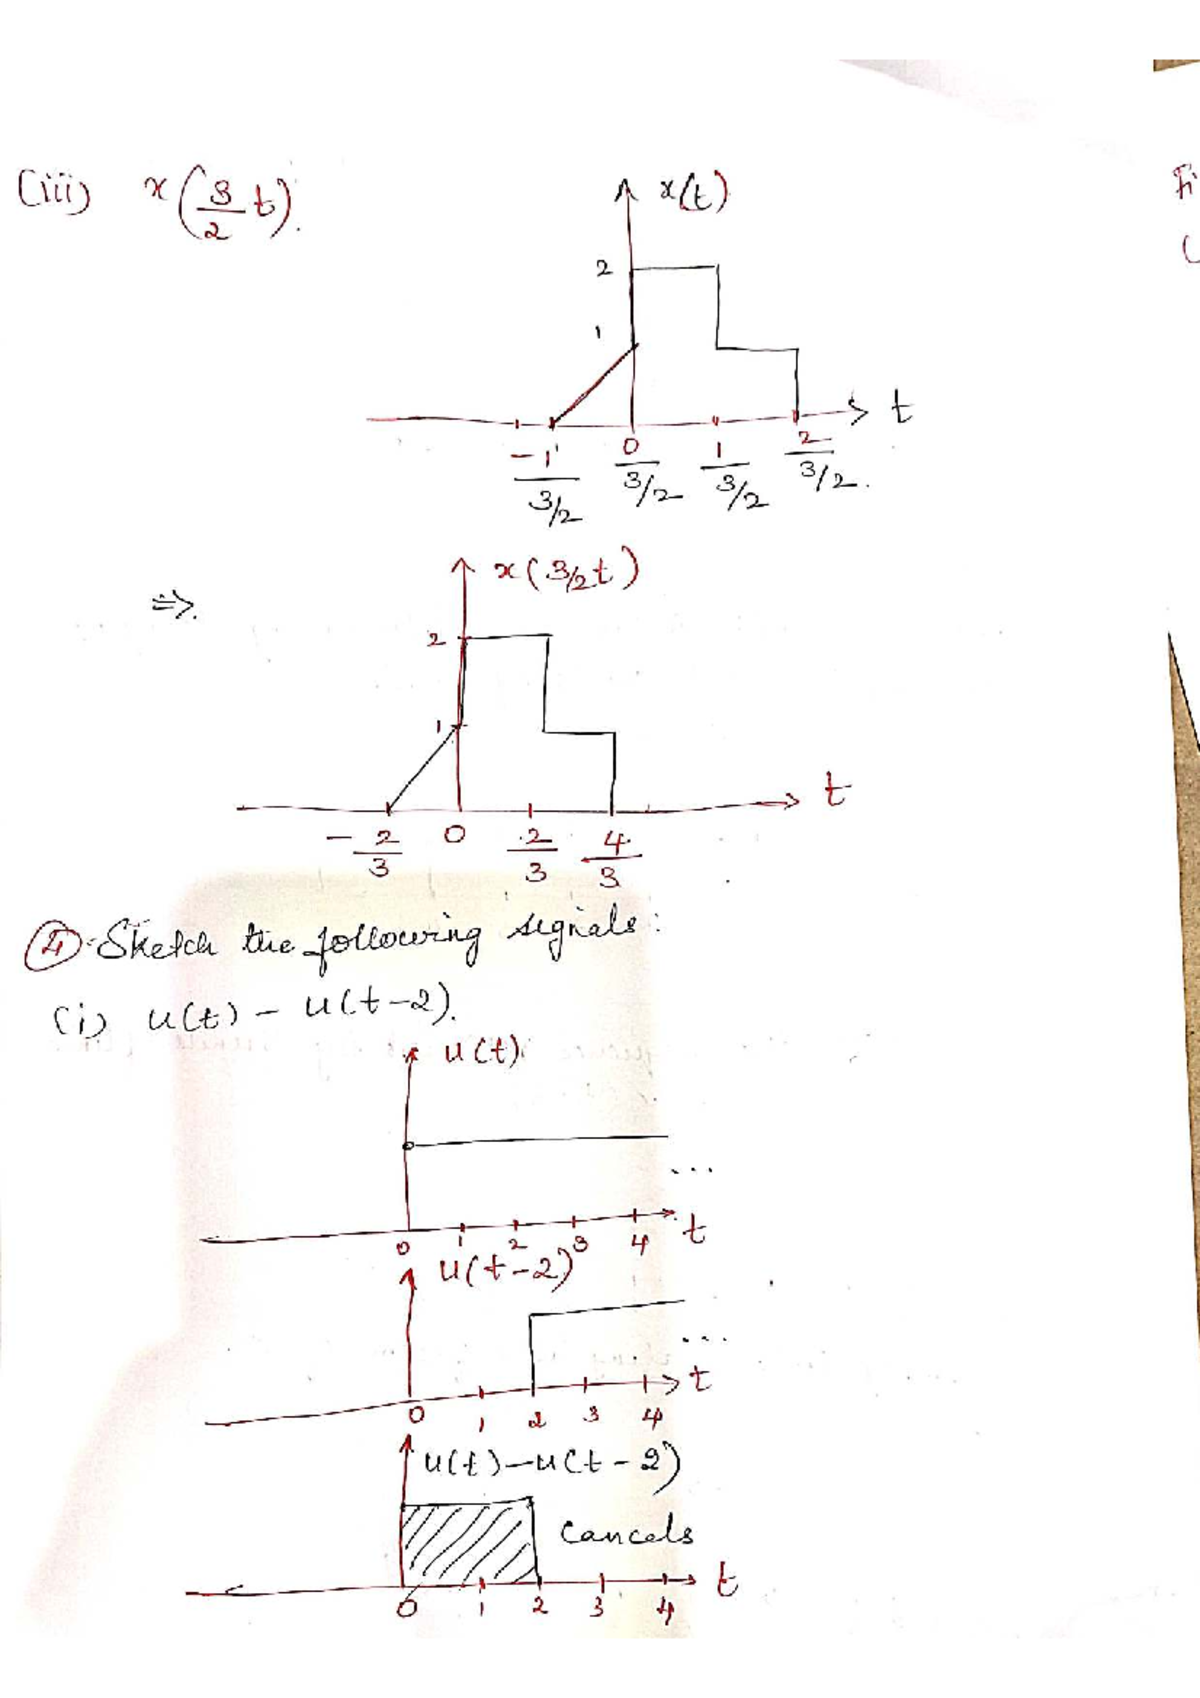 (iii) x(3/2 t).
x(t)
2
1
t
-1/(3/2) 0/(3/2) 1/(3/2) 2/(3/2).
⇒. x(3/2 t)
2
1
t
-2/3 0 2/3 4/3
④ Sketch the following signals:
(i) u(t) - u(t-2).
u(t)
...
0 1 2 3 4 t
u(t-2)
...
0 1 2 3 4 t
u(t)-u(t-2)
Cancels
0 1 2 3 4 t